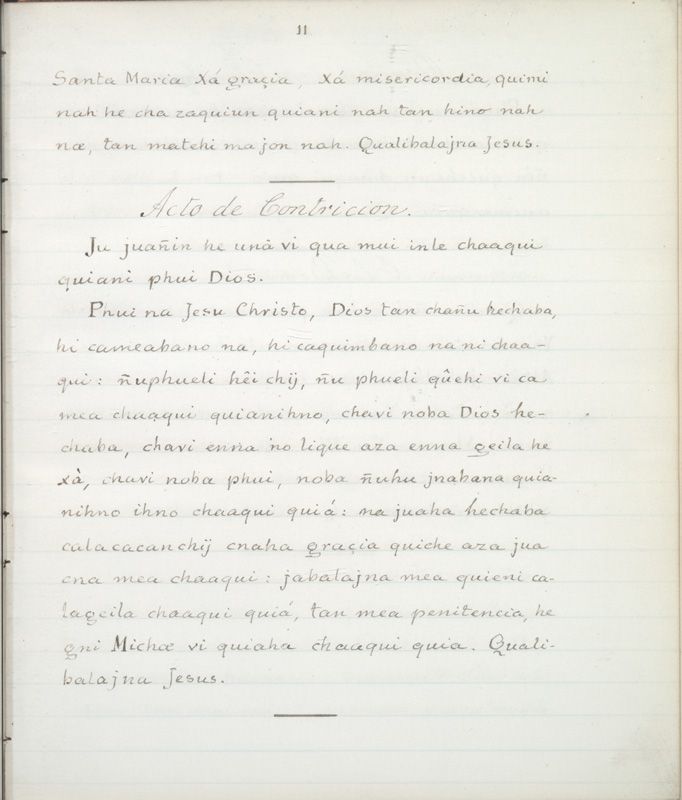 11
Santa Maria Xá graçia, Xá misericordia, quimi
nah he cha zaquiun quiani nah tan hino nah
næ, tan matehi majon nah. Qualibalajna Jesus.
Acto de Contricion.
Ju juañin he unâ vi qua mui inle chaaqui
quiani phui Dios.
Phui na Jesu Christo, Dios tan chañu hechaba,
hi cameabano na, hi caquimbano na ni chaa-
qui: ñuphueli hêi chij, ñu phueli qûehi vi ca
mea chaaqui quianihno, chavi noba Dios he-
chaba, chavi enna no lique aza enna geila he
xà, chavi noba phui, noba ñuhu jnabana quia-
nihno ihno chaaqui quiá: na juaha hechaba
calacacanchij cnaha graçia quiche aza jua
cna mea chaaqui: jabalajna mea quieni ca-
lageila chaaqui quiá, tan mea penitencia, he
gni Michæ vi quiaha chaaqui quia. Quali-
balajna Jesus.